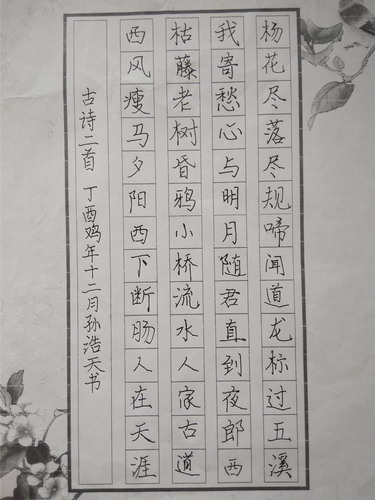 杨花尽落尽规啼闻道龙标过五溪
我寄愁心与明月随君直到夜郎西
枯藤老树昏鸦小桥流水人家古道
西风瘦马夕阳西下断肠人在天涯
古诗二首 丁酉鸡年十二月孙浩天书